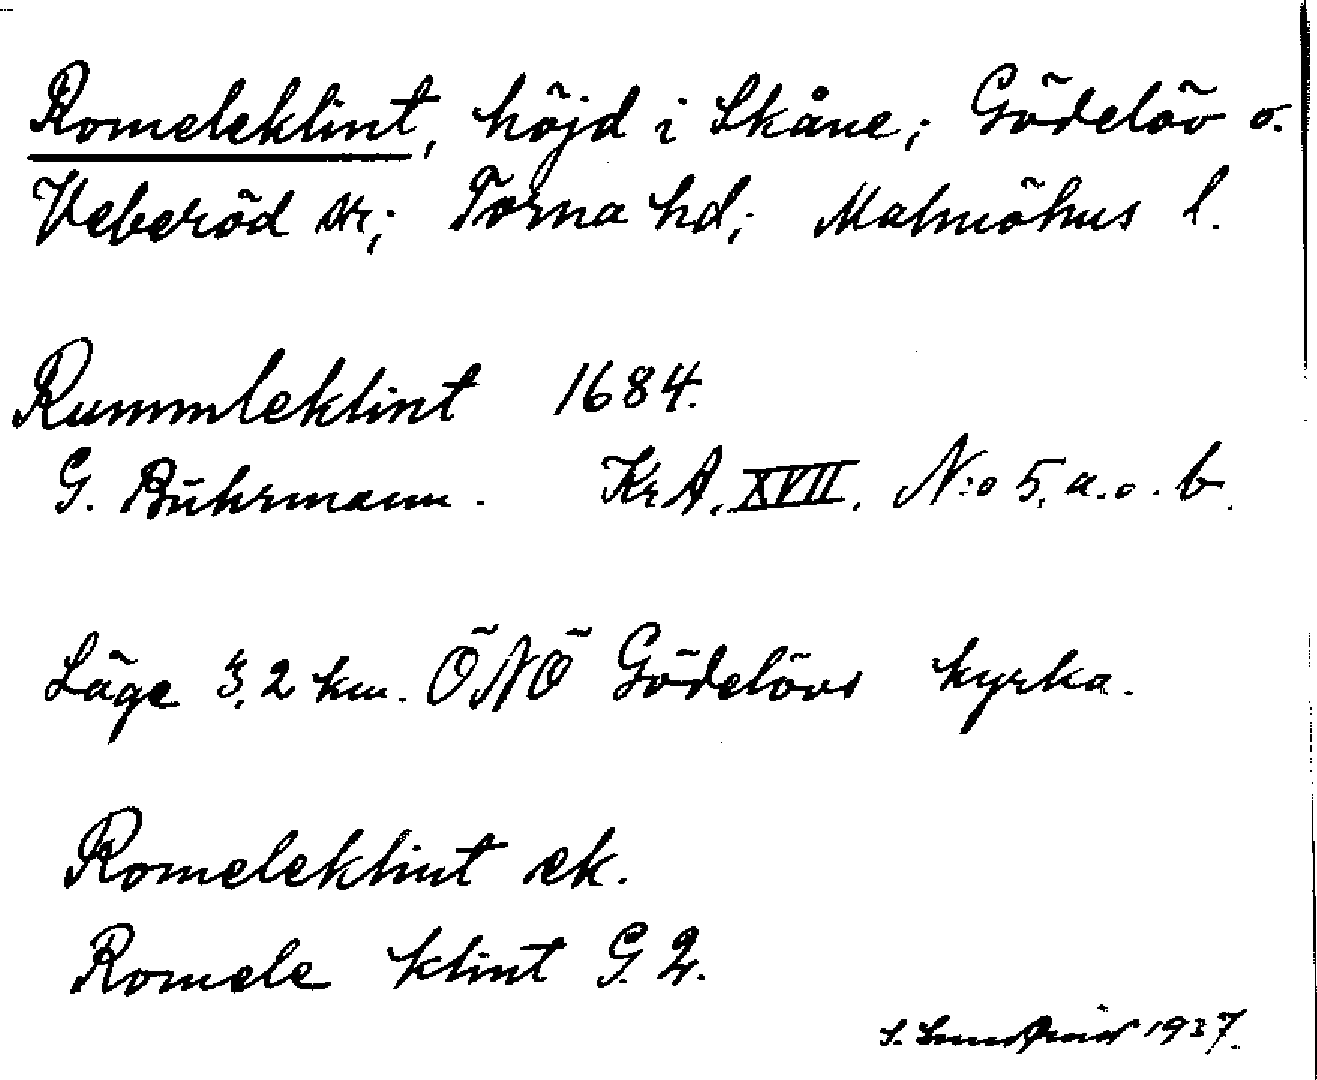 Romeleklint, höjd i Skåne; Gödelöv o.
Veberöd sr; Torna hd; Malmöhus l.
Rummleklint 1684.
G. Buhrmann. KrA. XVII. N:o 5, a.o.b.
Läge 3,2 km. ÖNÖ Gödelövs kyrka.
Romeleklint ek.
Romele klint G.2.
S. 1937.